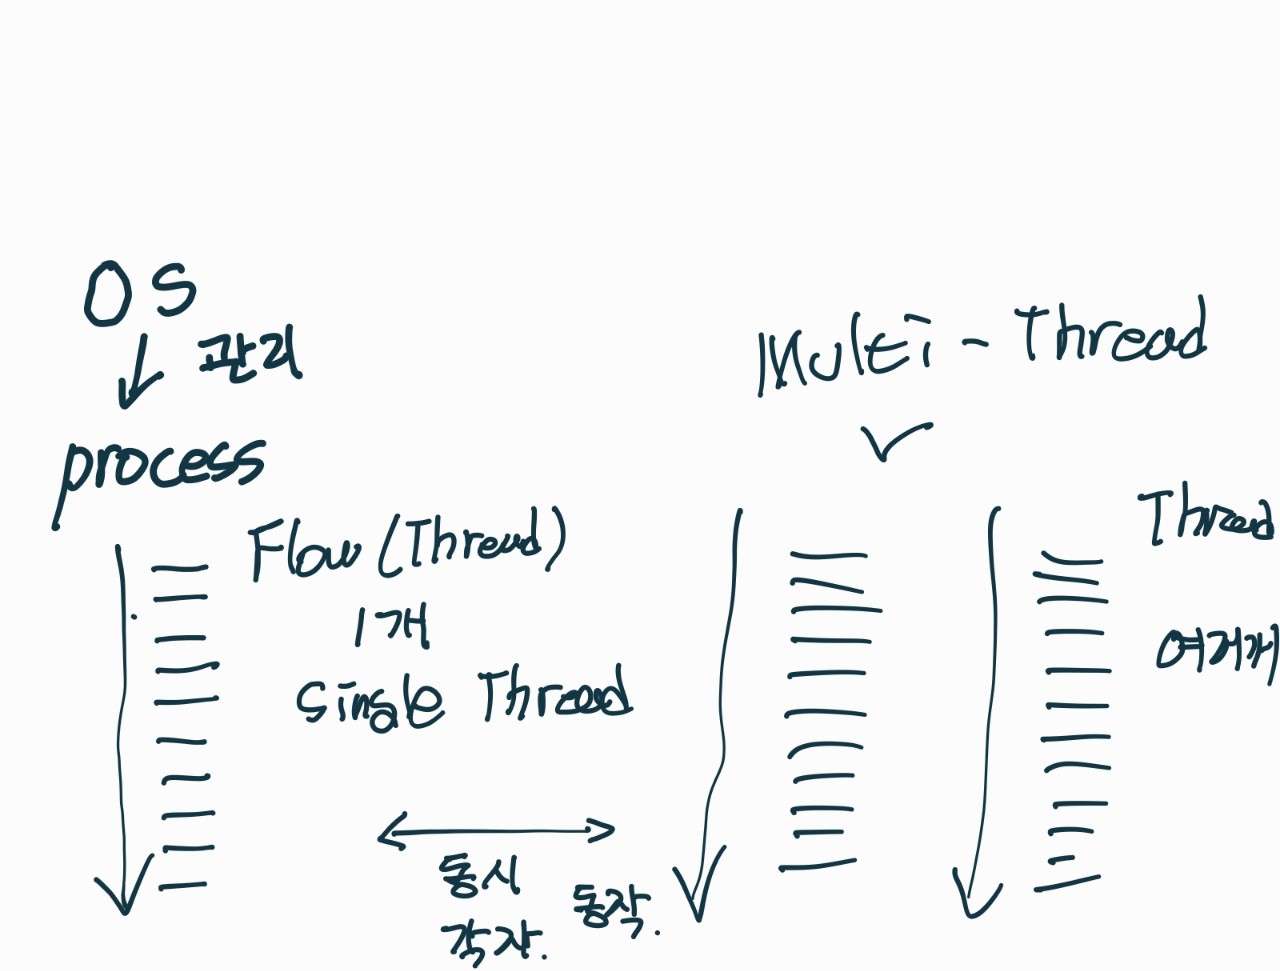 OS
관리
process
Flow (Thread)
1개
Single Thread
동시
각자.
동작.
Multi - Thread
Thread
여러개